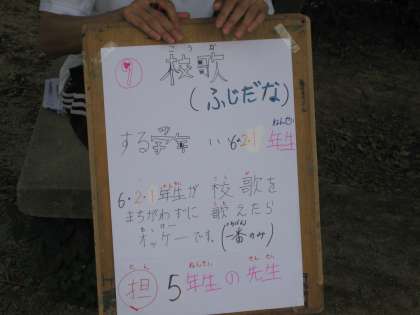 ⑨
こうか
校歌
(ふじだな)
する学年 い 6・2・1 年生
ねんせい
6・2・1年生が 校歌を
まちがわずに 歌えたら
オッケーです。(一番のみ)
担 5年生の先生
たん ねんせい せんせい